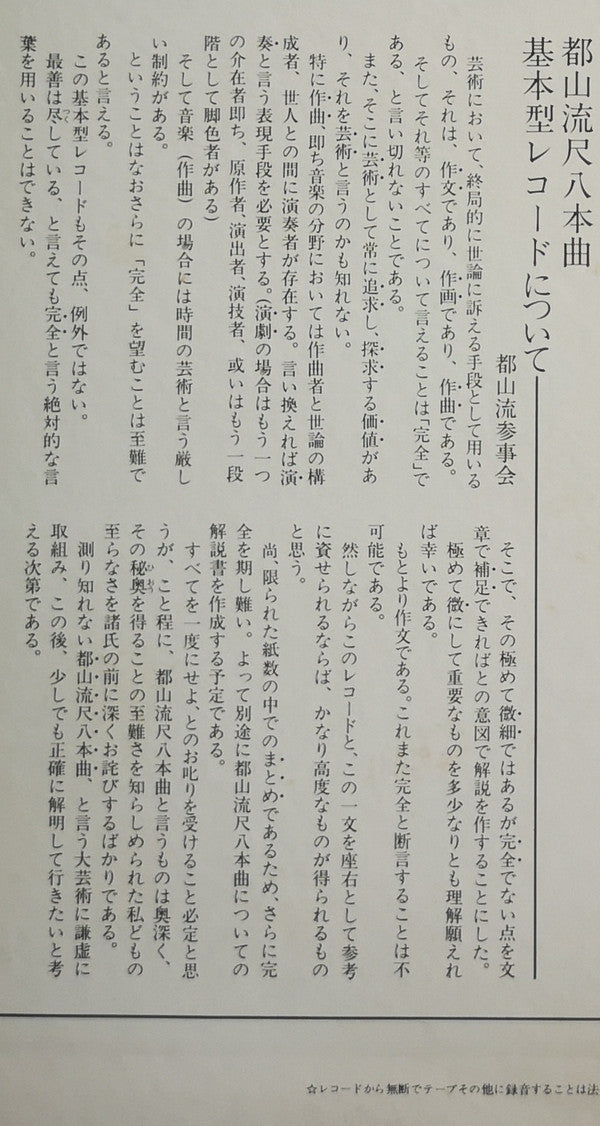 都山流尺八本曲
基本型レコードについて
都山流参事会
芸術において、終局的に世論に訴える手段として用いる
もの、それは、作文であり、作画であり、作曲である。
そしてそれ等のすべてについて言えることは「完全」で
ある、と言い切れないことである。
また、そこに芸術として常に追求し、探求する価値があ
り、それを芸術と言うのかも知れない。
特に作曲、即ち音楽の分野においては作曲者と世論の構
成者、世人との間に演奏者が存在する。言い換えれば演
奏と言う表現手段を必要とする。(演劇の場合はもう一つ
の介在者即ち、原作者、演出者、演技者、或いはもう一段
階として脚色者がある)
そして音楽（作曲）の場合には時間の芸術と言う厳し
い制約がある。
ということはなおさらに「完全」を望むことは至難で
あると言える。
この基本型レコードもその点、例外ではない。
最善は尽している、と言えても完全と言う絶対的な言
葉を用いることはできない。
そこで、その極めて微細ではあるが完全でない点を文
章で補足できればとの意図で解説を作することにした。
極めて微にして重要なものを多少なりとも理解願えれ
ば幸いである。
もとより作文である。これまた完全と断言することは不
可能である。
然しながらこのレコードと、この一文を座右として参考
に資せられるならば、かなり高度なものが得られるもの
と思う。
尚、限られた紙数の中でのまとめであるため、さらに完
全を期し難い。よって別途に都山流尺八本曲についての
解説書を作成する予定である。
すべてを一度にせよ、とのお叱りを受けること必定と思
うが、こと程に、都山流尺八本曲と言うものは奥深く、
その秘奥を得ることの至難さを知らしめられた私どもの
至らなさを諸氏の前に深くお詫びするばかりである。
測り知れない都山流尺八本曲、と言う大芸術に謙虚に
取組み、この後、少しでも正確に解明して行きたいと考
える次第である。
☆レコードから無断でテープその他に録音することは法